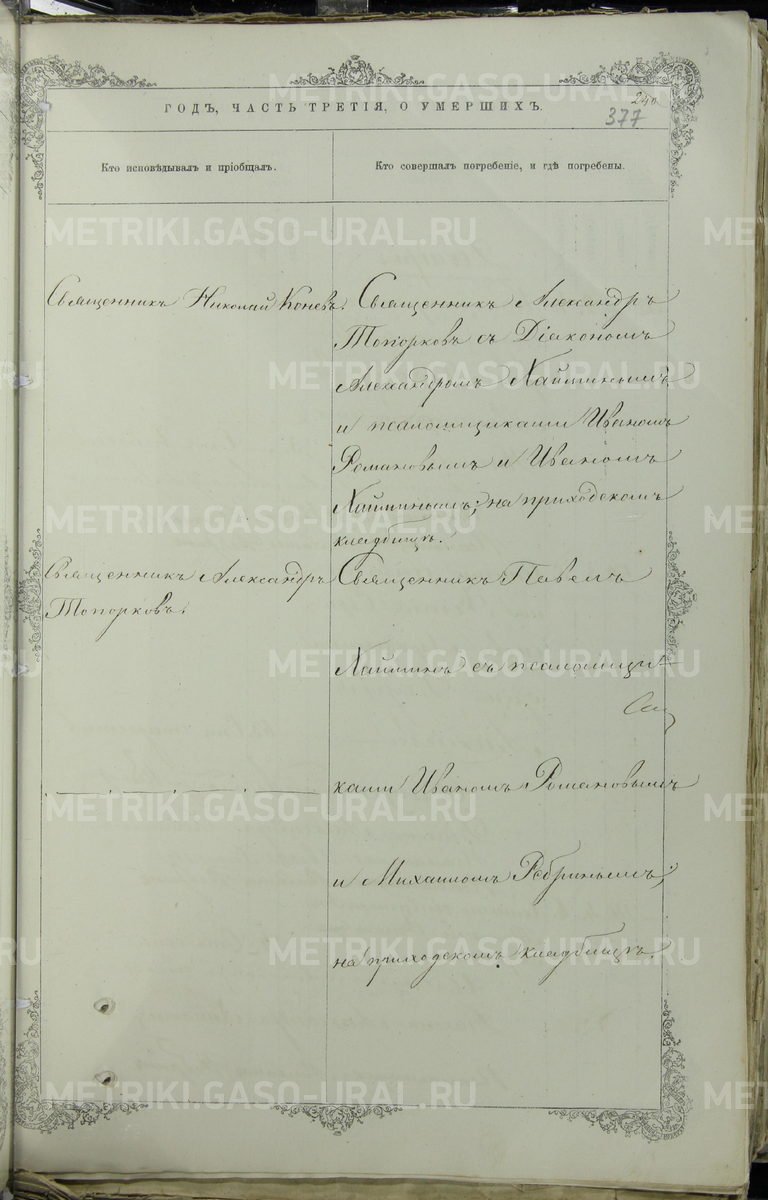 240
377
ГОДЪ, ЧАСТЬ ТРЕТІЯ, О УМЕРШИХЪ.
Кто исповѣдывалъ и пріобщалъ.
Кто совершалъ погребеніе, и гдѣ погребены.
Священникъ Николай Коневъ.
Священникъ Александръ
Топорковъ съ Діакономъ
Александромъ Хайминымъ
и псаломщиками Иваномъ
Романовымъ и Иваномъ
Хайминымъ; на приходскомъ
кладбищѣ.
Священникъ Александръ
Топорковъ.
Священникъ Павелъ
Хайминъ съ псаломщи-
ками Иваномъ Романовымъ
и Михаиломъ Ребринымъ;
на приходскомъ кладбищѣ.
METRIKI.GASO-URAL.RU